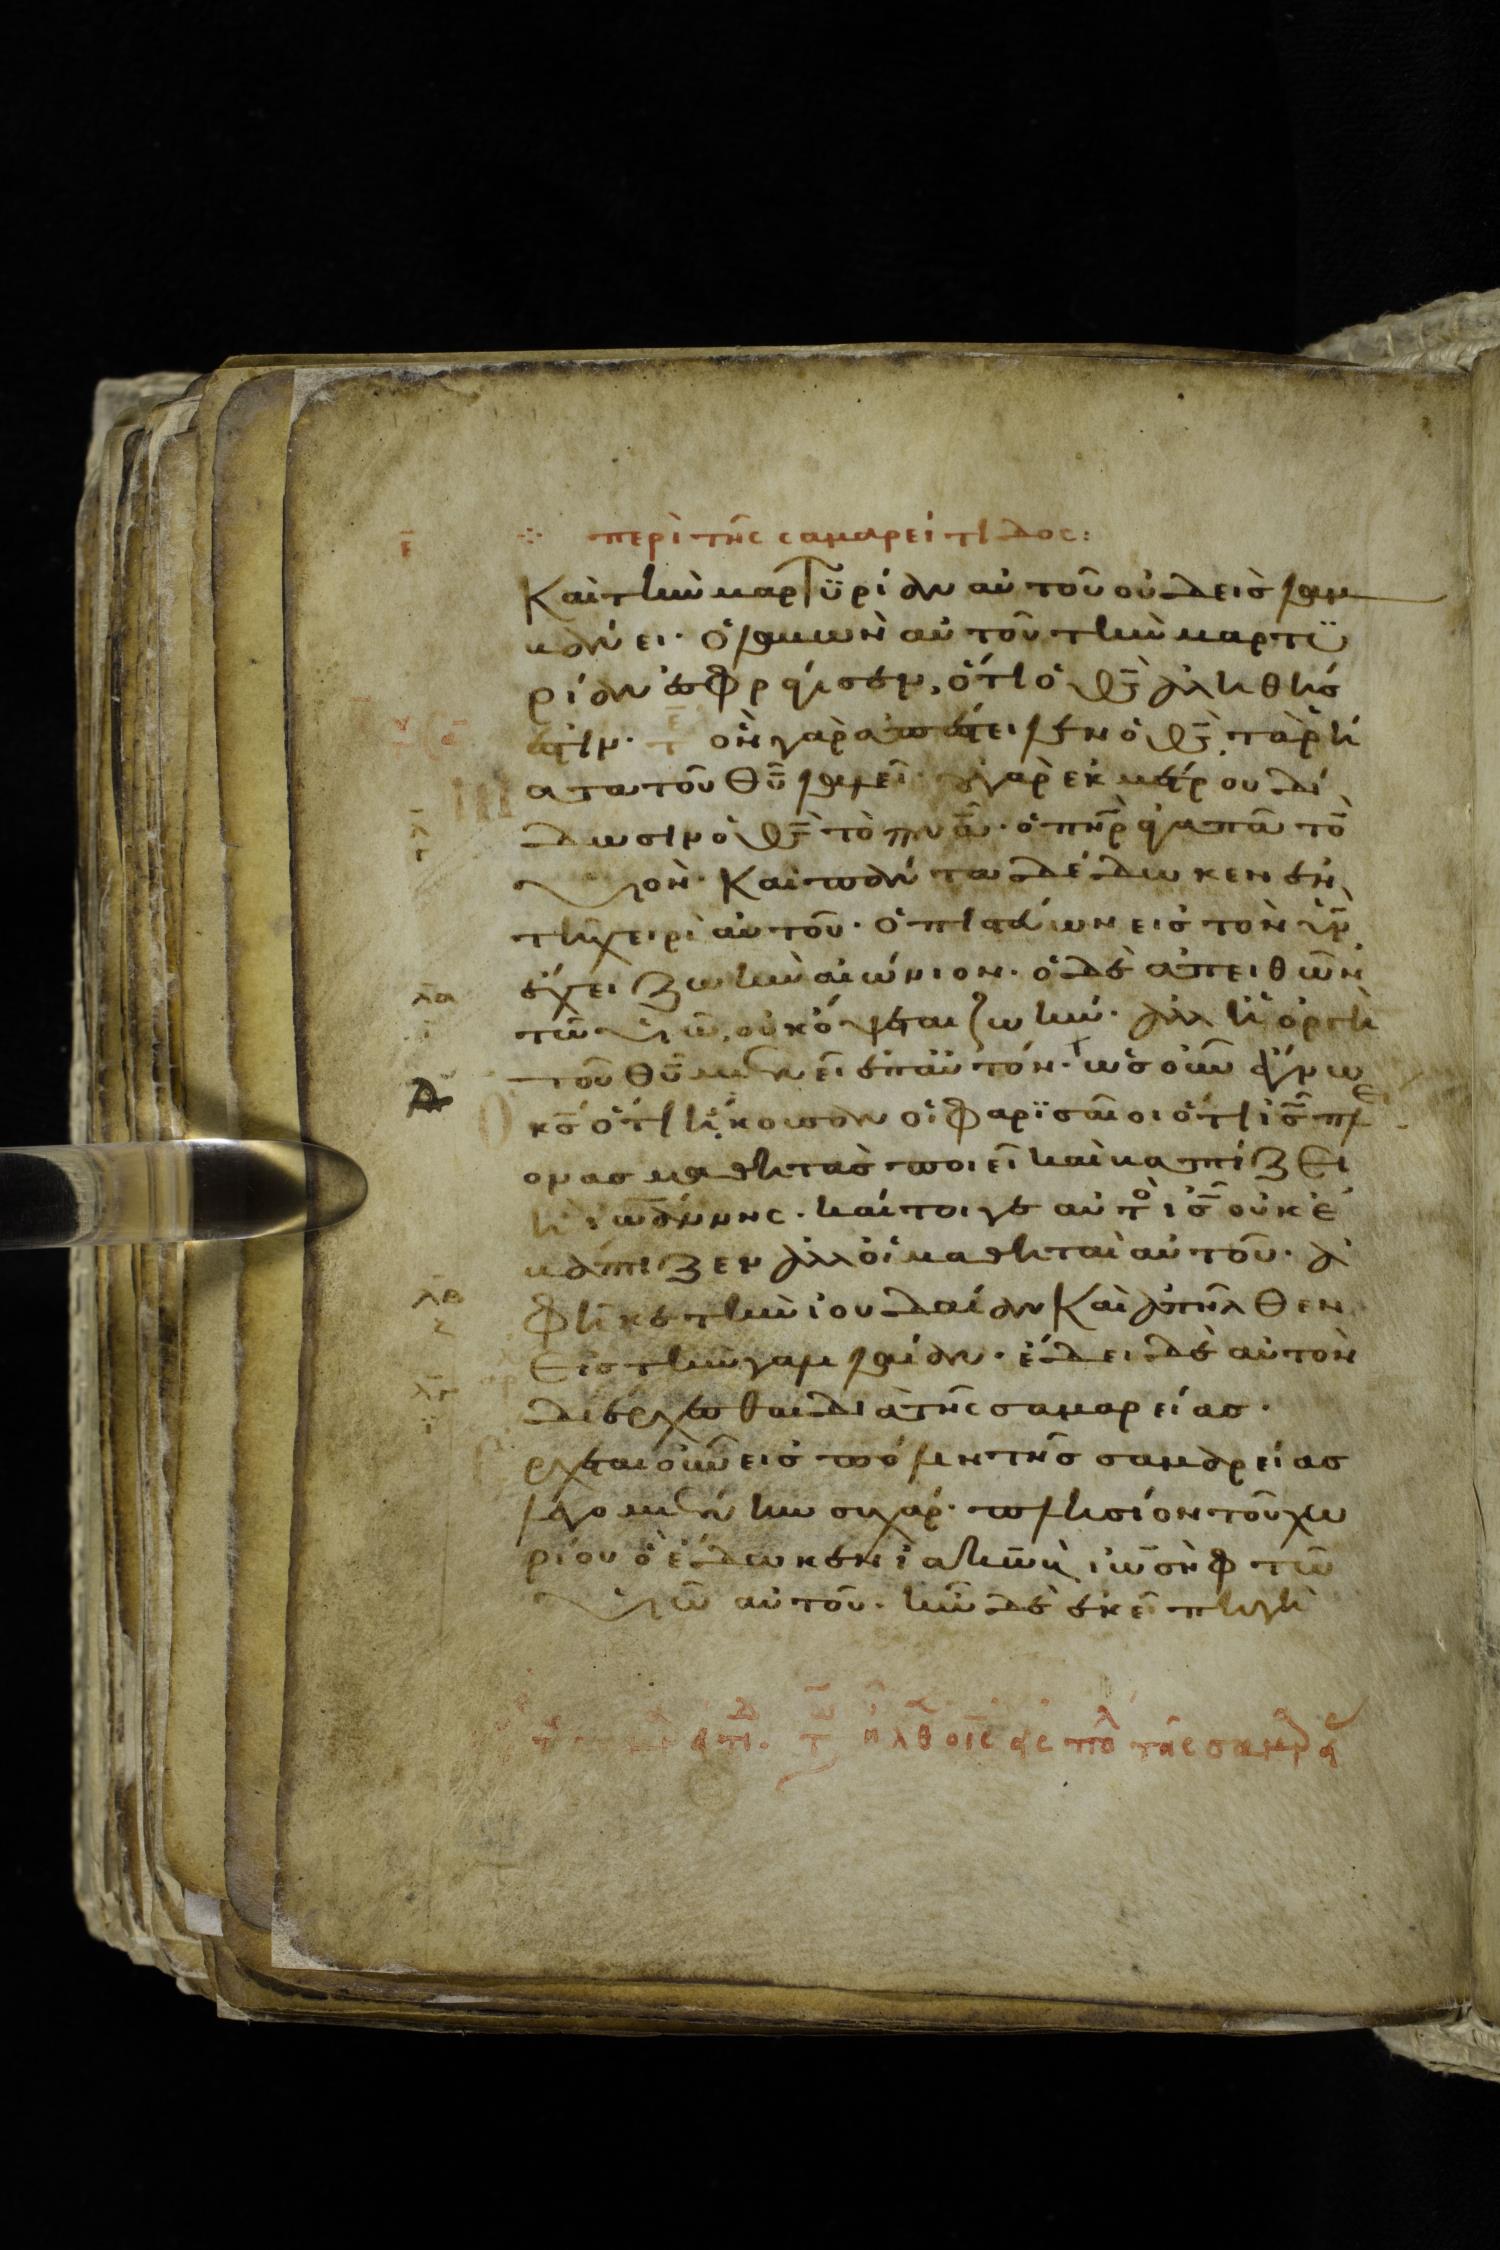 ε̅ ⁘ περὶ τῆς σαμαρείτιδος:
Καὶ τὴν μαρτϋρίαν αὐτοῦ οὐδεὶς λαμ
βάνει· ὁ λαβὼν αὐτοῦ τὴν μαρτϋ
ρίαν ἐσφράγισεν, ὅτι ὁ θ̅ς̅ ἀληθής
ἐστιν· ὃν γὰρ ἀπέστειλεν ὁ θ̅ς̅ τὰ ῥή
ματα τοῦ θ̅υ̅ λαλεῖ· οὐ γὰρ ἐκ μέτρου δί
δωσιν ὁ θ̅ς̅ τὸ π̅ν̅α̅· ὁ π̅η̅ρ̅ ἀγαπᾶ τὸν
υἱὸν· Καὶ πάντα δέδωκεν ἐν
τῆ χειρὶ αὐτοῦ· ὁ πιστεύων εἰς τὸν υ̅ν̅
ἔχει ζωὴν αἰώνιον· ὁ δὲ ἀπειθῶν
τῶ υἱῶ, οὐκ ὄψεται ζωήν· ἀλλ ἡ ὀργὴ
τοῦ θ̅υ̅ μένει ἐπ αὐτόν· ὡς οὖν ἔγνω
ὁ κ̅ς̅ ὅτι ἤκουσαν οἱ φαρϊσαῖοι ὅτι ι̅ς̅ πλεί
ονας μαθητὰς ποιεῖ καὶ βαπτίζει
ἢ ἰωάννης· καίτοιγε αὐτὸς ι̅ς̅ οὐκ ἐ
βάπτιζεν ἀλλ οἱ μαθηταὶ αὐτοῦ· ἀ
φῆκε τὴν ἰουδαίαν Καὶ ἀπῆλθεν
εἰς τὴν γαλιλαίαν· ἔδει δὲ αὐτὸν
διέρχεσθαι διὰ τῆς σαμαρείας·
ἔρχεται οὖν εἰς πόλιν τῆς σαμαρείας
λεγομένην συχάρ· πλησίον τοῦ χω
ρίου ὃ ἔδωκεν ἰακὼβ ἰωσὴφ τῶ
υἱῶ αὐτοῦ· ἦν δὲ ἐκεῖ πηγὴ